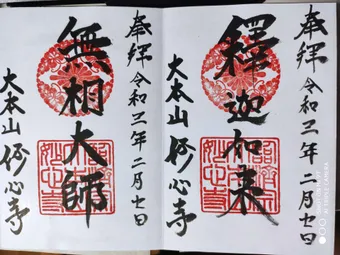 奉拝 令和三年二月七日
釋迦如来
大本山 妙心寺
奉拝 令和三年二月七日
無相大師
大本山 妙心寺